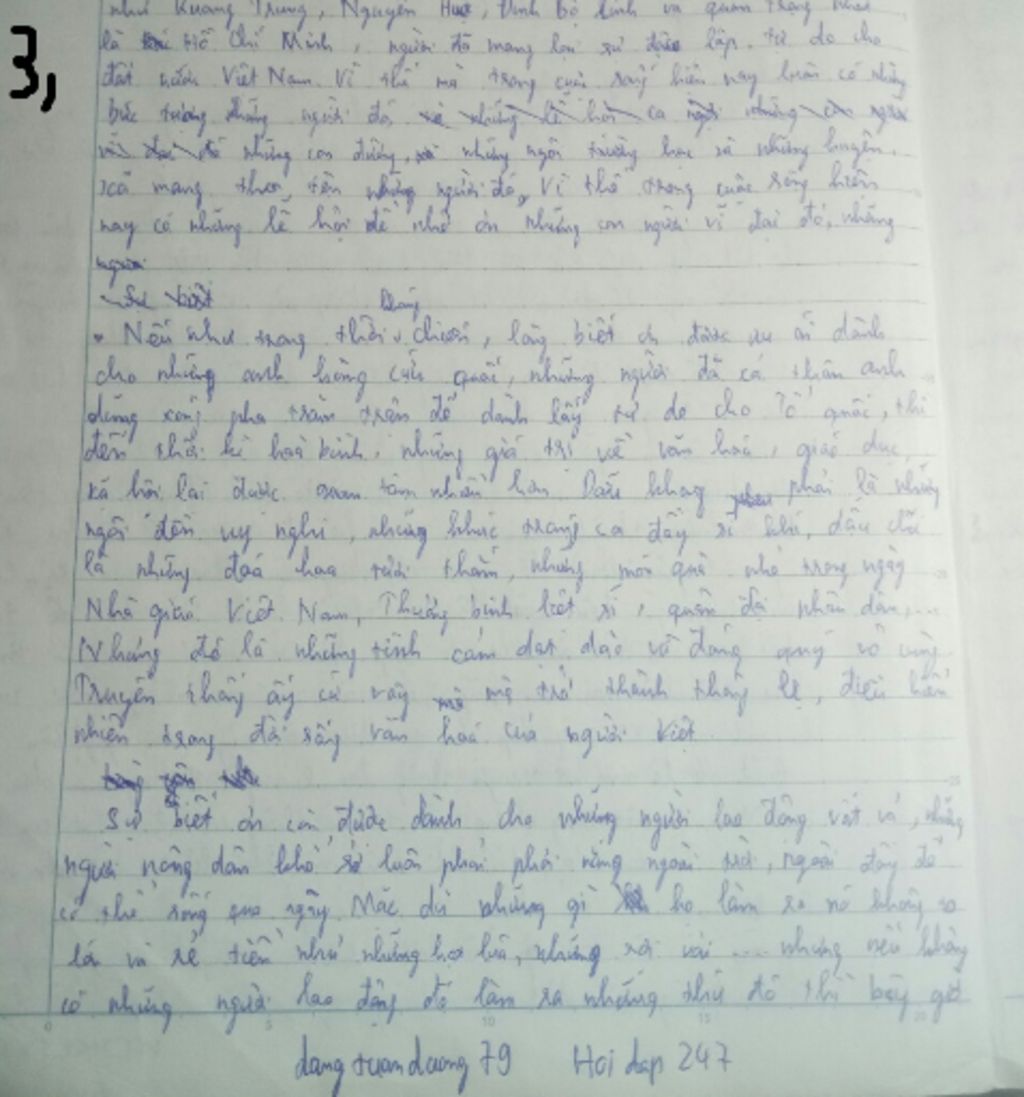 như Quang Trung, Nguyễn Huệ, Đinh Bộ Lĩnh và quan trọng nhất
3,
là Hồ Chí Minh, người đã mang lại sự độc lập, tự do cho
đất nước Việt Nam. Vì thế mà trong cuộc sống hiện nay luôn có những
bức tượng những người đó
những con đường, những ngôi trường học và những huyện,
xã mang theo tên những người đó, Vì thế trong cuộc sống hiện
nay có những lễ hội để nhớ ơn những con người vĩ đại đó, những
người
Sự biết
Nếu như trong thời chiến, lòng biết ơn được ưu ái dành
cho những anh hùng cứu quốc, những người đã cả thân anh
dũng xông pha trăm trận để dành lấy tự do cho Tổ quốc, thì
đến thời kì hoà bình, những giá trị về văn hoá, giáo dục,
xã hội lại được quan tâm nhiều hơn. Dẫu không phải là những
ngôi đền uy nghi, những khúc tráng ca đầy sĩ khí, dẫu chỉ
là những đoá hoa tươi thắm, những món quà nhỏ trong ngày
Nhà giáo Việt Nam, Thương binh liệt sĩ, quân đội nhân dân,...
Nhưng đó là những tình cảm dạt dào và đáng quý vô cùng.
Truyền thống ấy cứ vậy mà trở thành thông lệ, điều hiển
nhiên trong đời sống văn hoá của người Việt.
Sự biết ơn còn được dành cho những người lao động vất vả, những
người nông dân khổ sở luôn phải phơi nắng ngoài trời, ngoài đấy để
có thể sống qua ngày. Mặc dù những gì họ làm ra nó không to
lớn và rẻ tiền như những hạt lúa, những sợi vải .... nhưng nếu không
có những người lao động đó làm ra những thứ đó thì bây giờ
dang tuan duong 79 Hoi dap 247